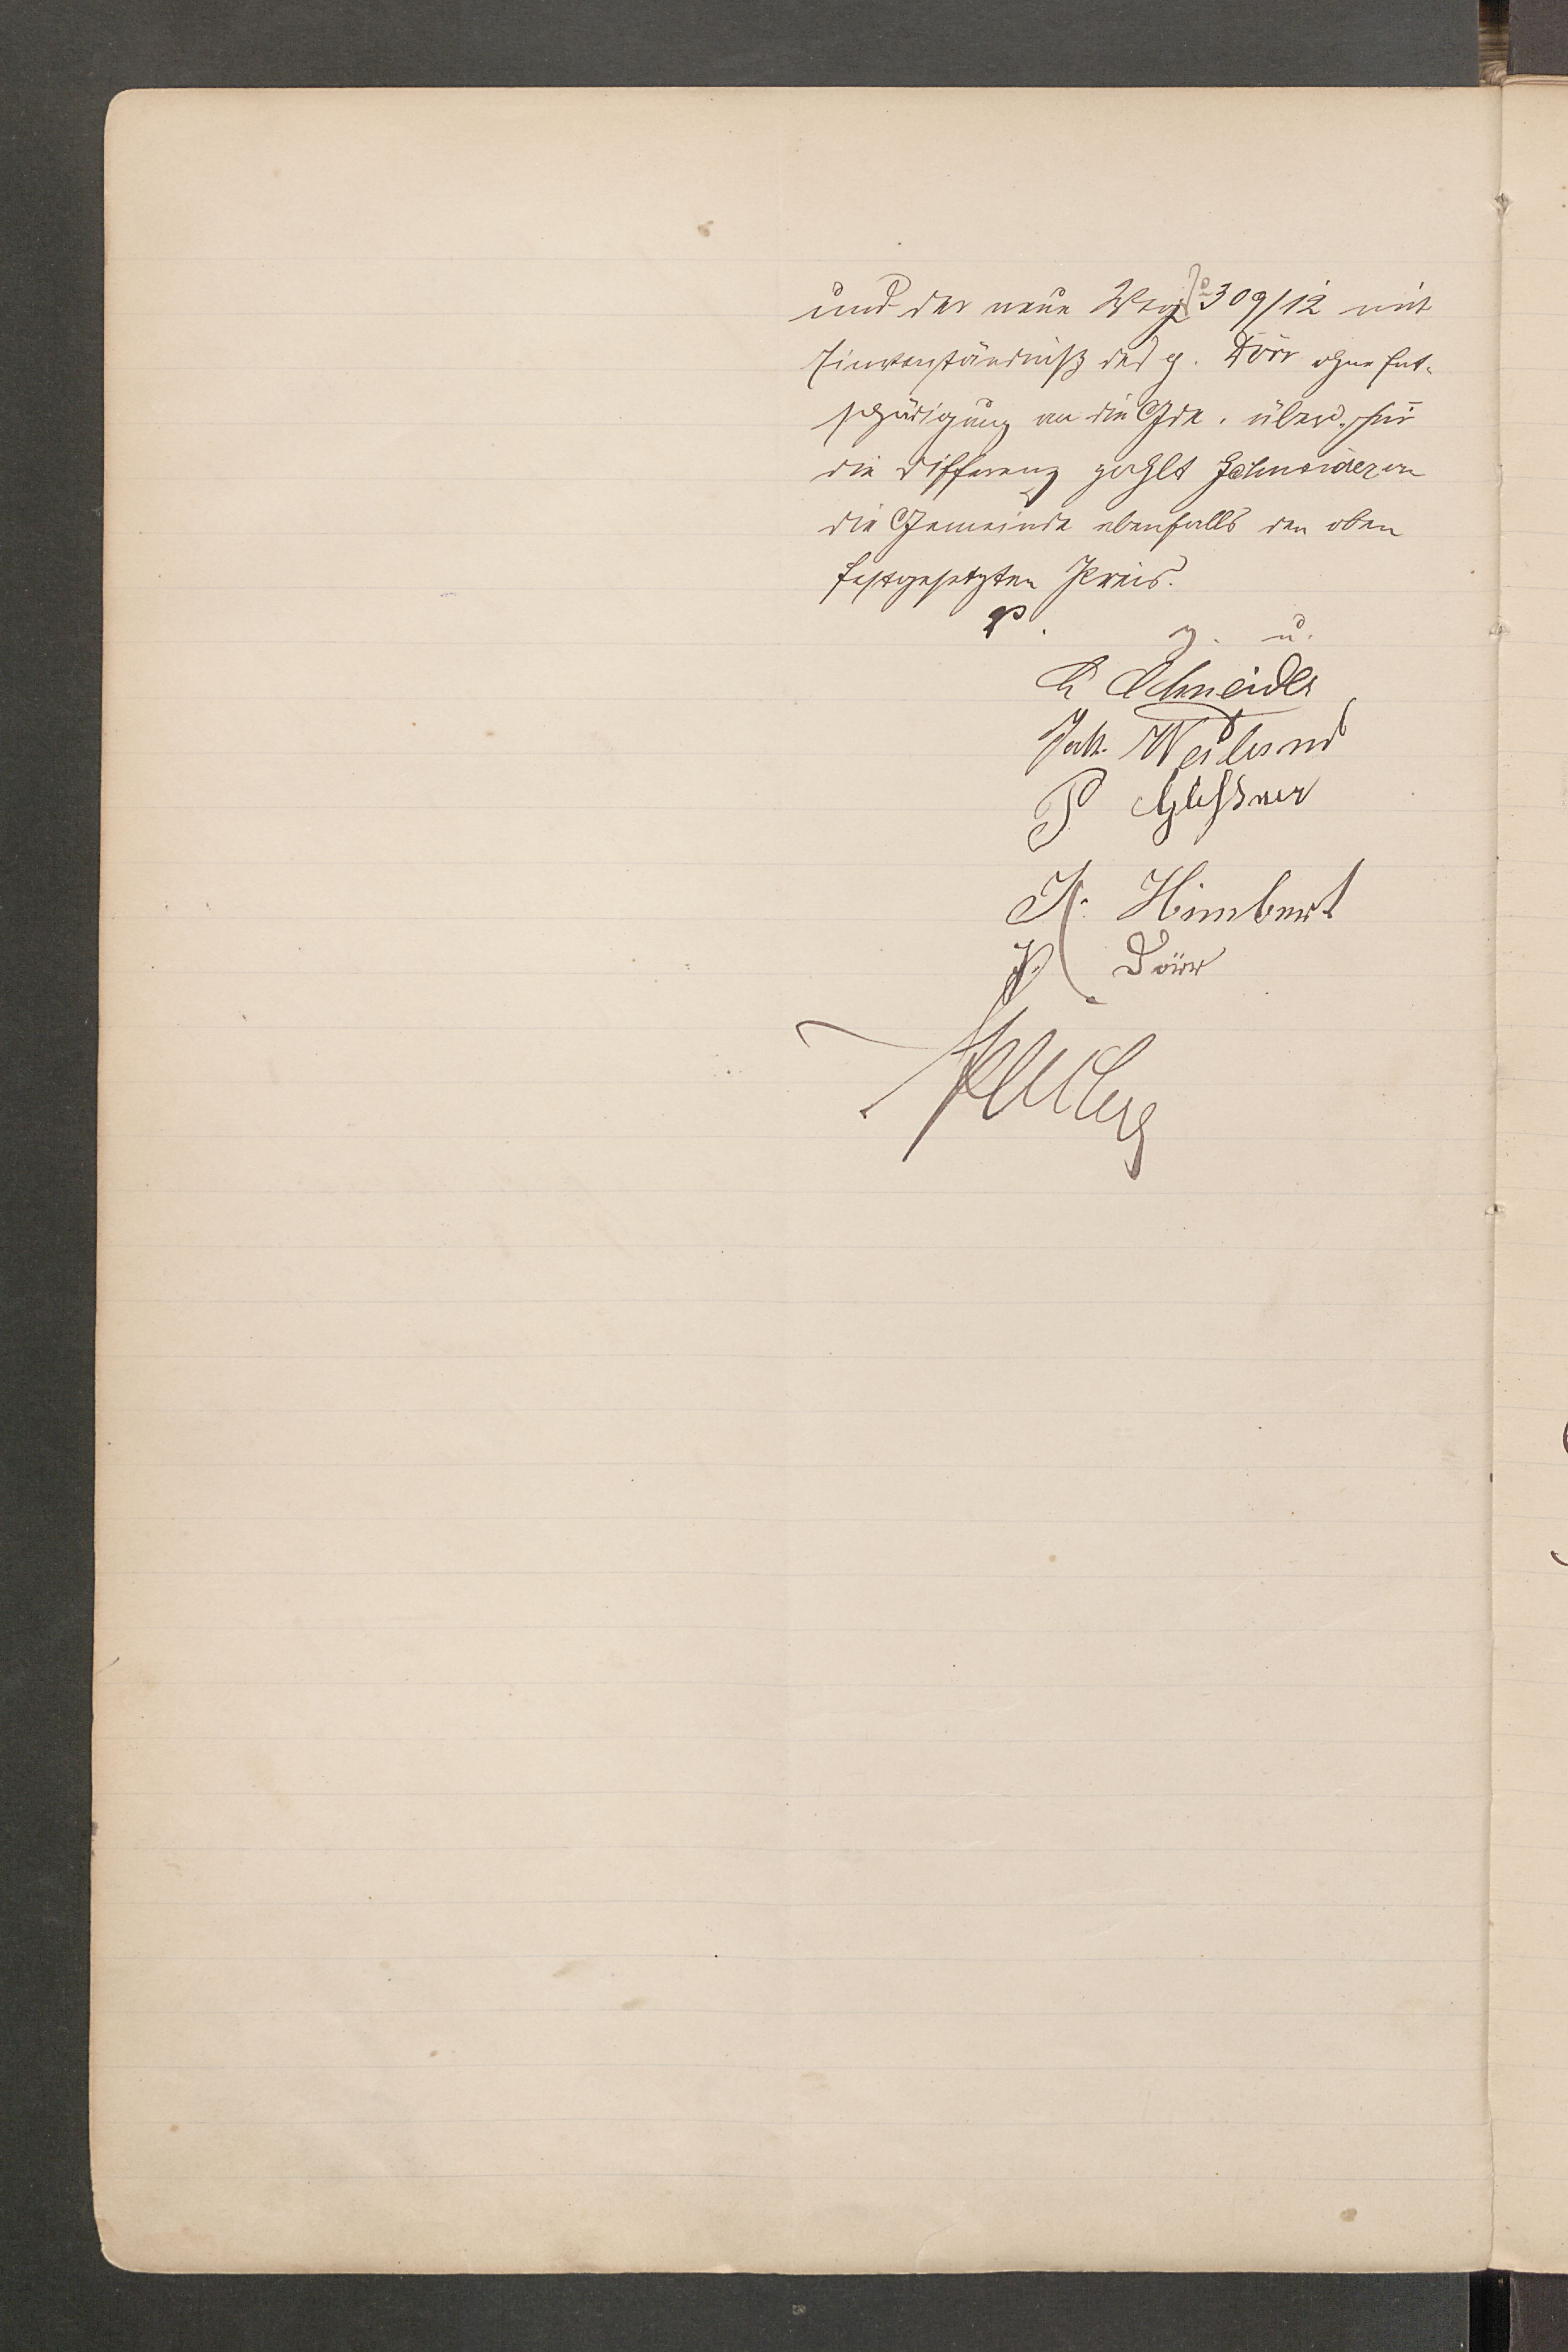 und der neue Weg 309/12 mit
Einverständniß des g. Dörr ohne Ent-
schädigung an die Gde. überd. für
die Differenz zahlt Schneider an
die Gemeinde ebenfalls den oben
festgesetzten Preis.
g. u.
Schneider
Jak. Weiland
P Gleßner
K. Himbert
P. Dörr